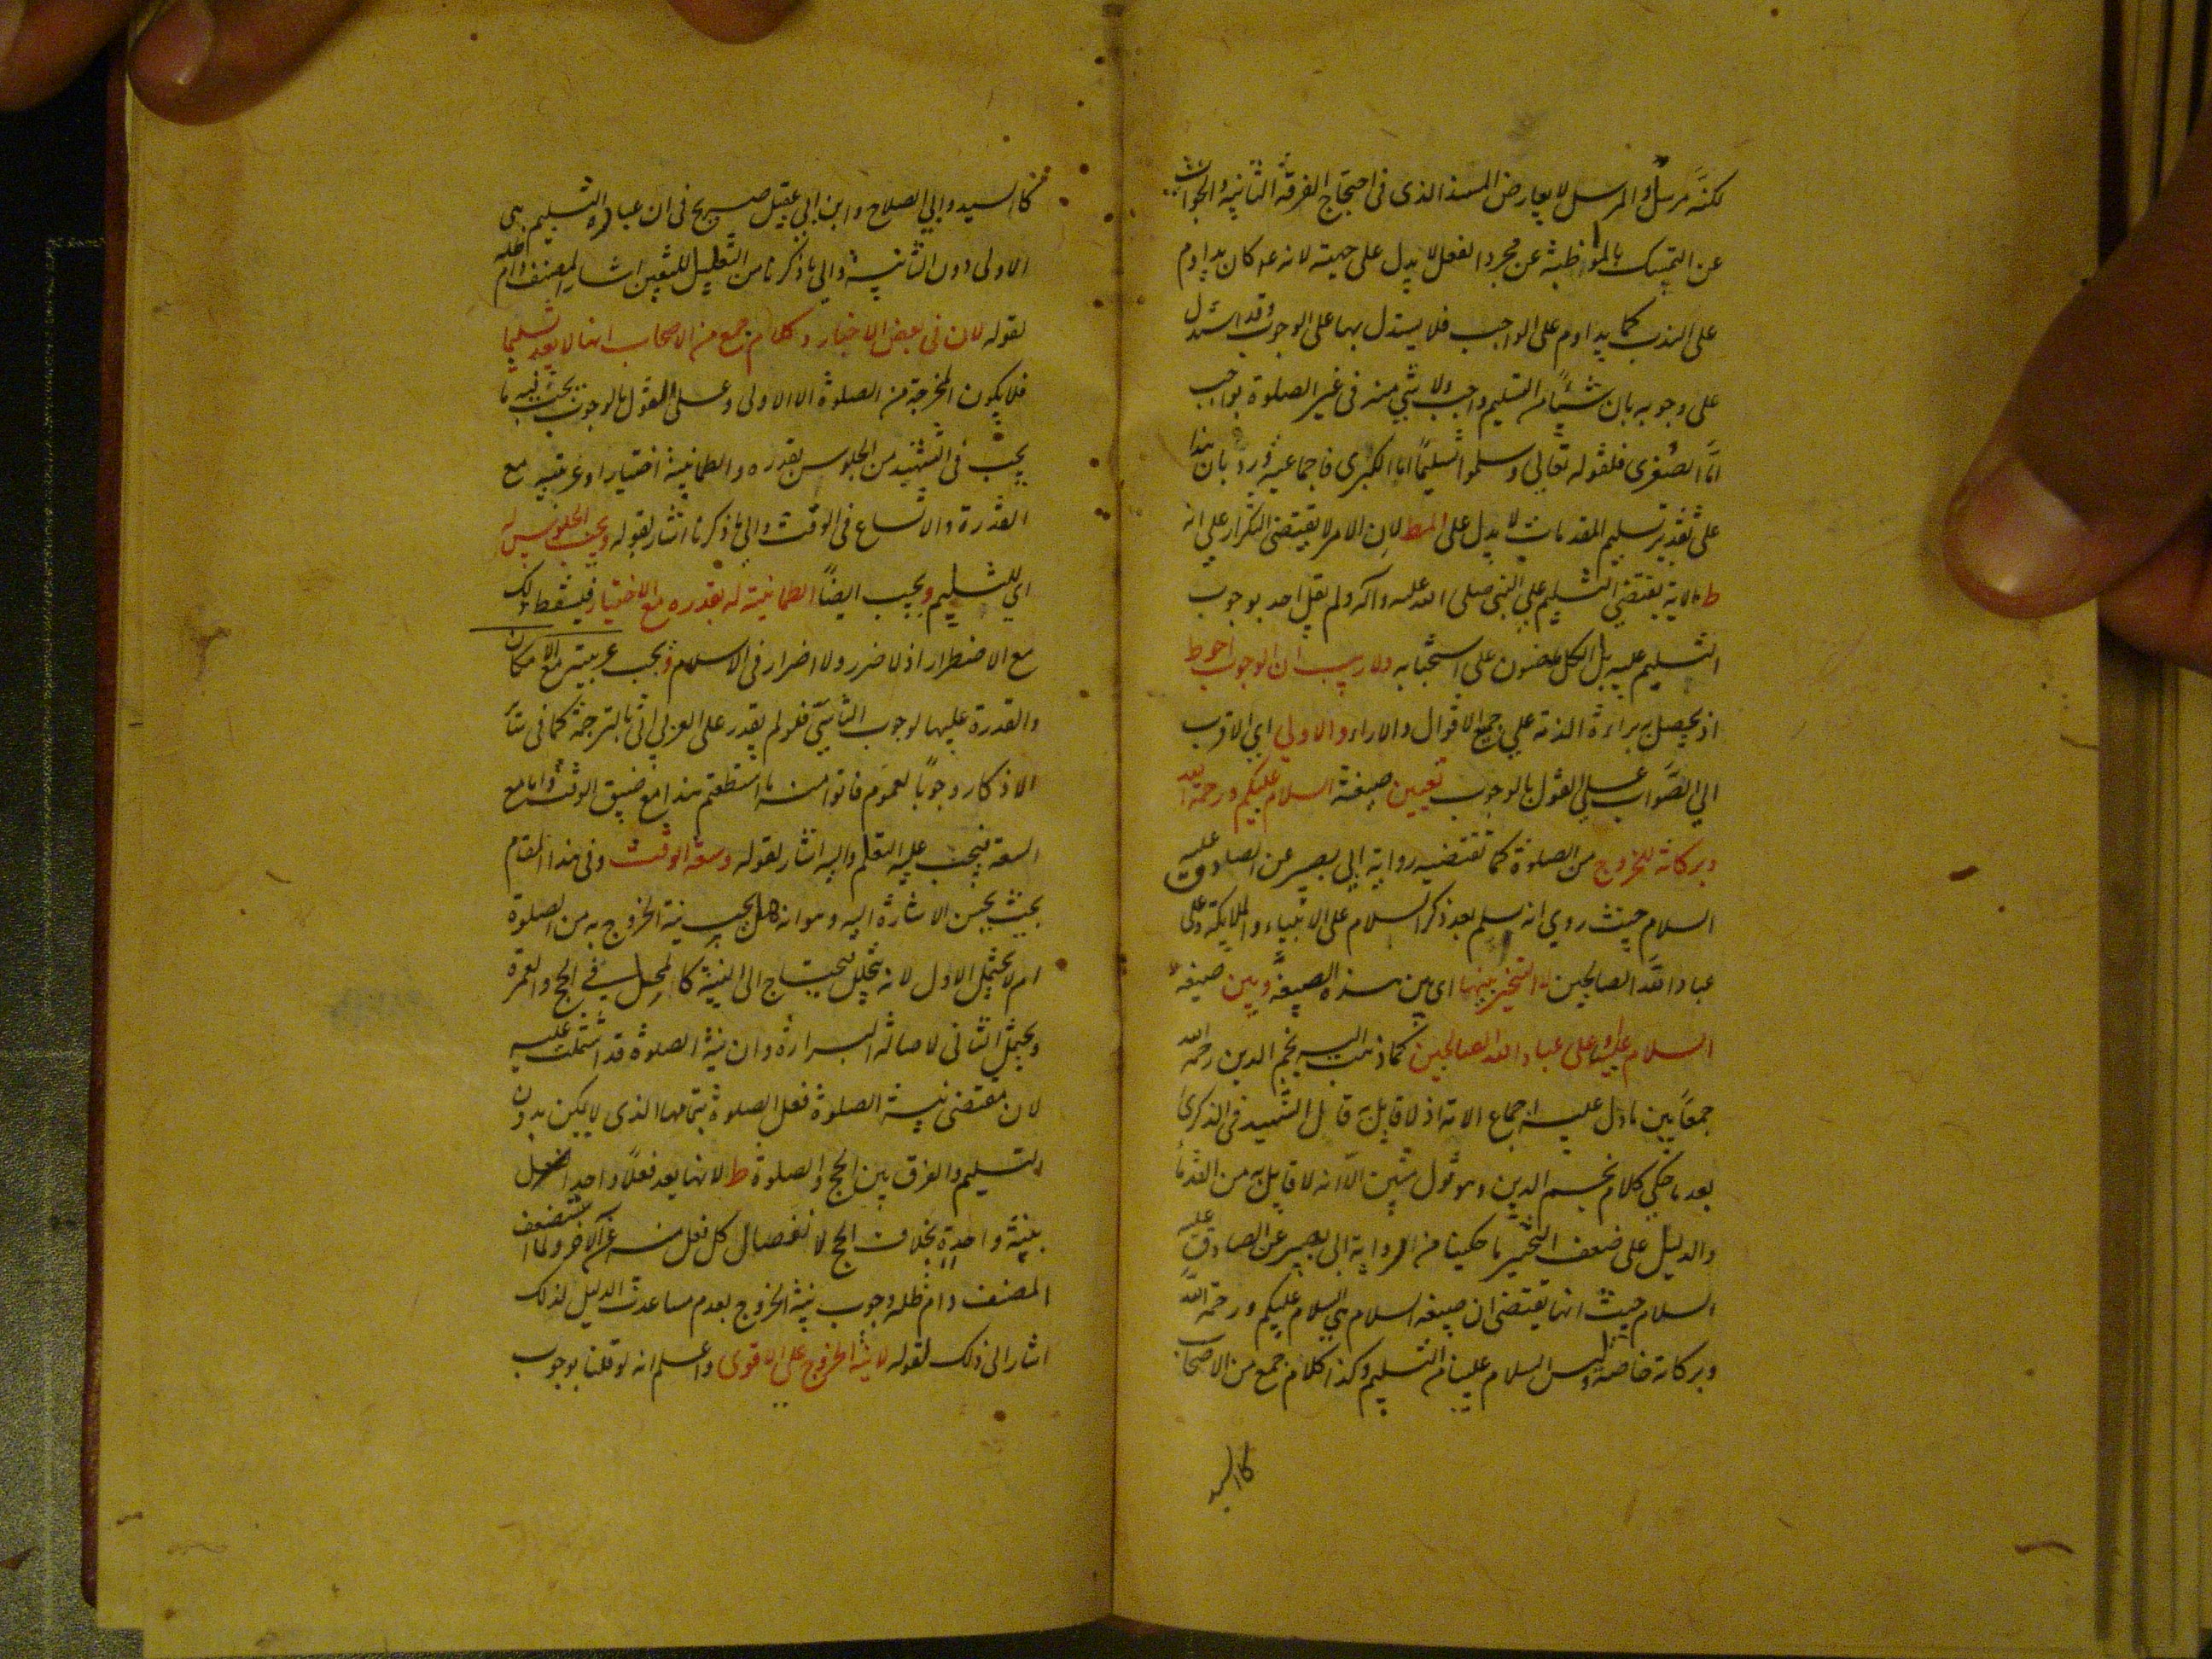 لكنه مرسل والمرسل لا يعارض المسند الذى فى احتجاج الفرقة الثانية والجواب
عن التمسك بالمواظبة عن مجرد الفعل لا يدل على جهته لانه عم كان يداوم
على الندب كما يداوم على الواجب فلا يستدل بها على الوجوب وقد استدل
على وجوبه بان شيئًا من التسليم واجب ولا شي منه فى غير الصلوة بواجب
امّا الصغرى فلقوله تعالي وسلموا تسليمًا اما الكبرى فاجماعية ورد بان هذا
على تقدير تسليم المقدمات لا يدل على المط لان الامر لا يقتضى التكرار علي انه
ط الاية يقتضي التسليم علي النبى صلى الله عليه وآله ولم يقل احد بوجوب
التسليم عليه بل الكل على استحبابه ولا ريب ان الوجوب احوط
اذ يحصل به براءة الذمة علي جميع الاقوال والاراء والاولي اي الاقرب
الي الصواب علي القول بالوجوب تعيين صيغة السلام عليكم ورحمة الله
وبركاته للخروج من الصلوة كما تقتضيه رواية ابي بصير عن الصادق عليه
السلام حيث روي انه سلم بعد ذكر السلام على الانبياء والملايكة وعلى
عباد الله الصالحين لا التخيير بينها اى بين هذه الصيغة وبين صيغة
السلام علينا وعلى عباد الله الصالحين كما ذهب اليه نجم الدين رحمه الله
جمعًا بين ما دل عليه اجماع الامة اذ لا قايل به قال الشهيد فى الذكرى
بعد ما حكي كلام نجم الدين وهو قول متين الّا انه لا قايل به من القدما
والدليل على ضعف التخيير ما حكينا من الرواية ابى بصير عن الصادق عليه
السلام حيث انها يقتضى ان صيغة السلام هي السلام عليكم ورحمة الله
وبركاته خاصة وليس السلام علينا من التسليم وكذا كلام جمع من الاصحاب
كالسيد
كالسيد وابي الصلاح وابن ابي عقيل صريح فى ان عبارة التسليم هى
الاولى دون الثانية والي ما ذكرنا من التعليل للتعيين اشار المصنف دام ظله
لقوله لان فى بعض الاخبار وكلام جمع من الاصحاب انها لا يعد تسليما
فلا يكون المخرجة من الصلوة الا الاولى وعلى القول بالوجوب يجب فيه ما
يجب فى التشهد من الجلوس بقدره والطمانية اختيارا وعربيته مع
القدرة والاتساع فى الوقت والي ما ذكرنا اشار بقوله ويجب الجلوس له
اي للتسليم ويجب ايضًا الطمانينة له بقدره مع الاختيار فيسقط ذلك
مع الاضطرار اذ لا ضرر ولا اضرار فى الاسلام ويجب عربيته مع الامكان
والقدرة عليها لوجوب التاسى فلو لم يقدر على العربي اتى بالترجمة كما فى سائر
الاذكار وجوبًا لعموم فاتوا منه ما استطعتم هذا مع ضيق الوقت واما مع
السعة فيجب عليه التعلم واليه اشار لقوله وسعة الوقت وفى هذا المقام
بحث يحسن الاشارة اليه وهو انه هل يجب نية الخروج به من الصلوة
ام لا يحتمل الاول لانه محلل فيحتاج الى النية كالمحلل في الحج والعمرة
ويحتمل الثانى لاصالة البراءة وان نية الصلوة قد اشتملت عليه
لان مقتضى نية الصلوة فعل الصلوة بتمامها الذى لا يمكن بدون
التسليم والفرق بين الحج والصلوة ط لانها يعد فعلًا واحدا
بنية واحدة بخلاف الحج لانفصال كل فعل منه عن الآخر ولما استضعف
المصنف دام ظله وجوب نية الخروج بعدم مساعدة الدليل لذلك
اشار الى ذلك لقوله لا نية الخروج علي الاقوى واعلم انه لو قلنا بوجوب